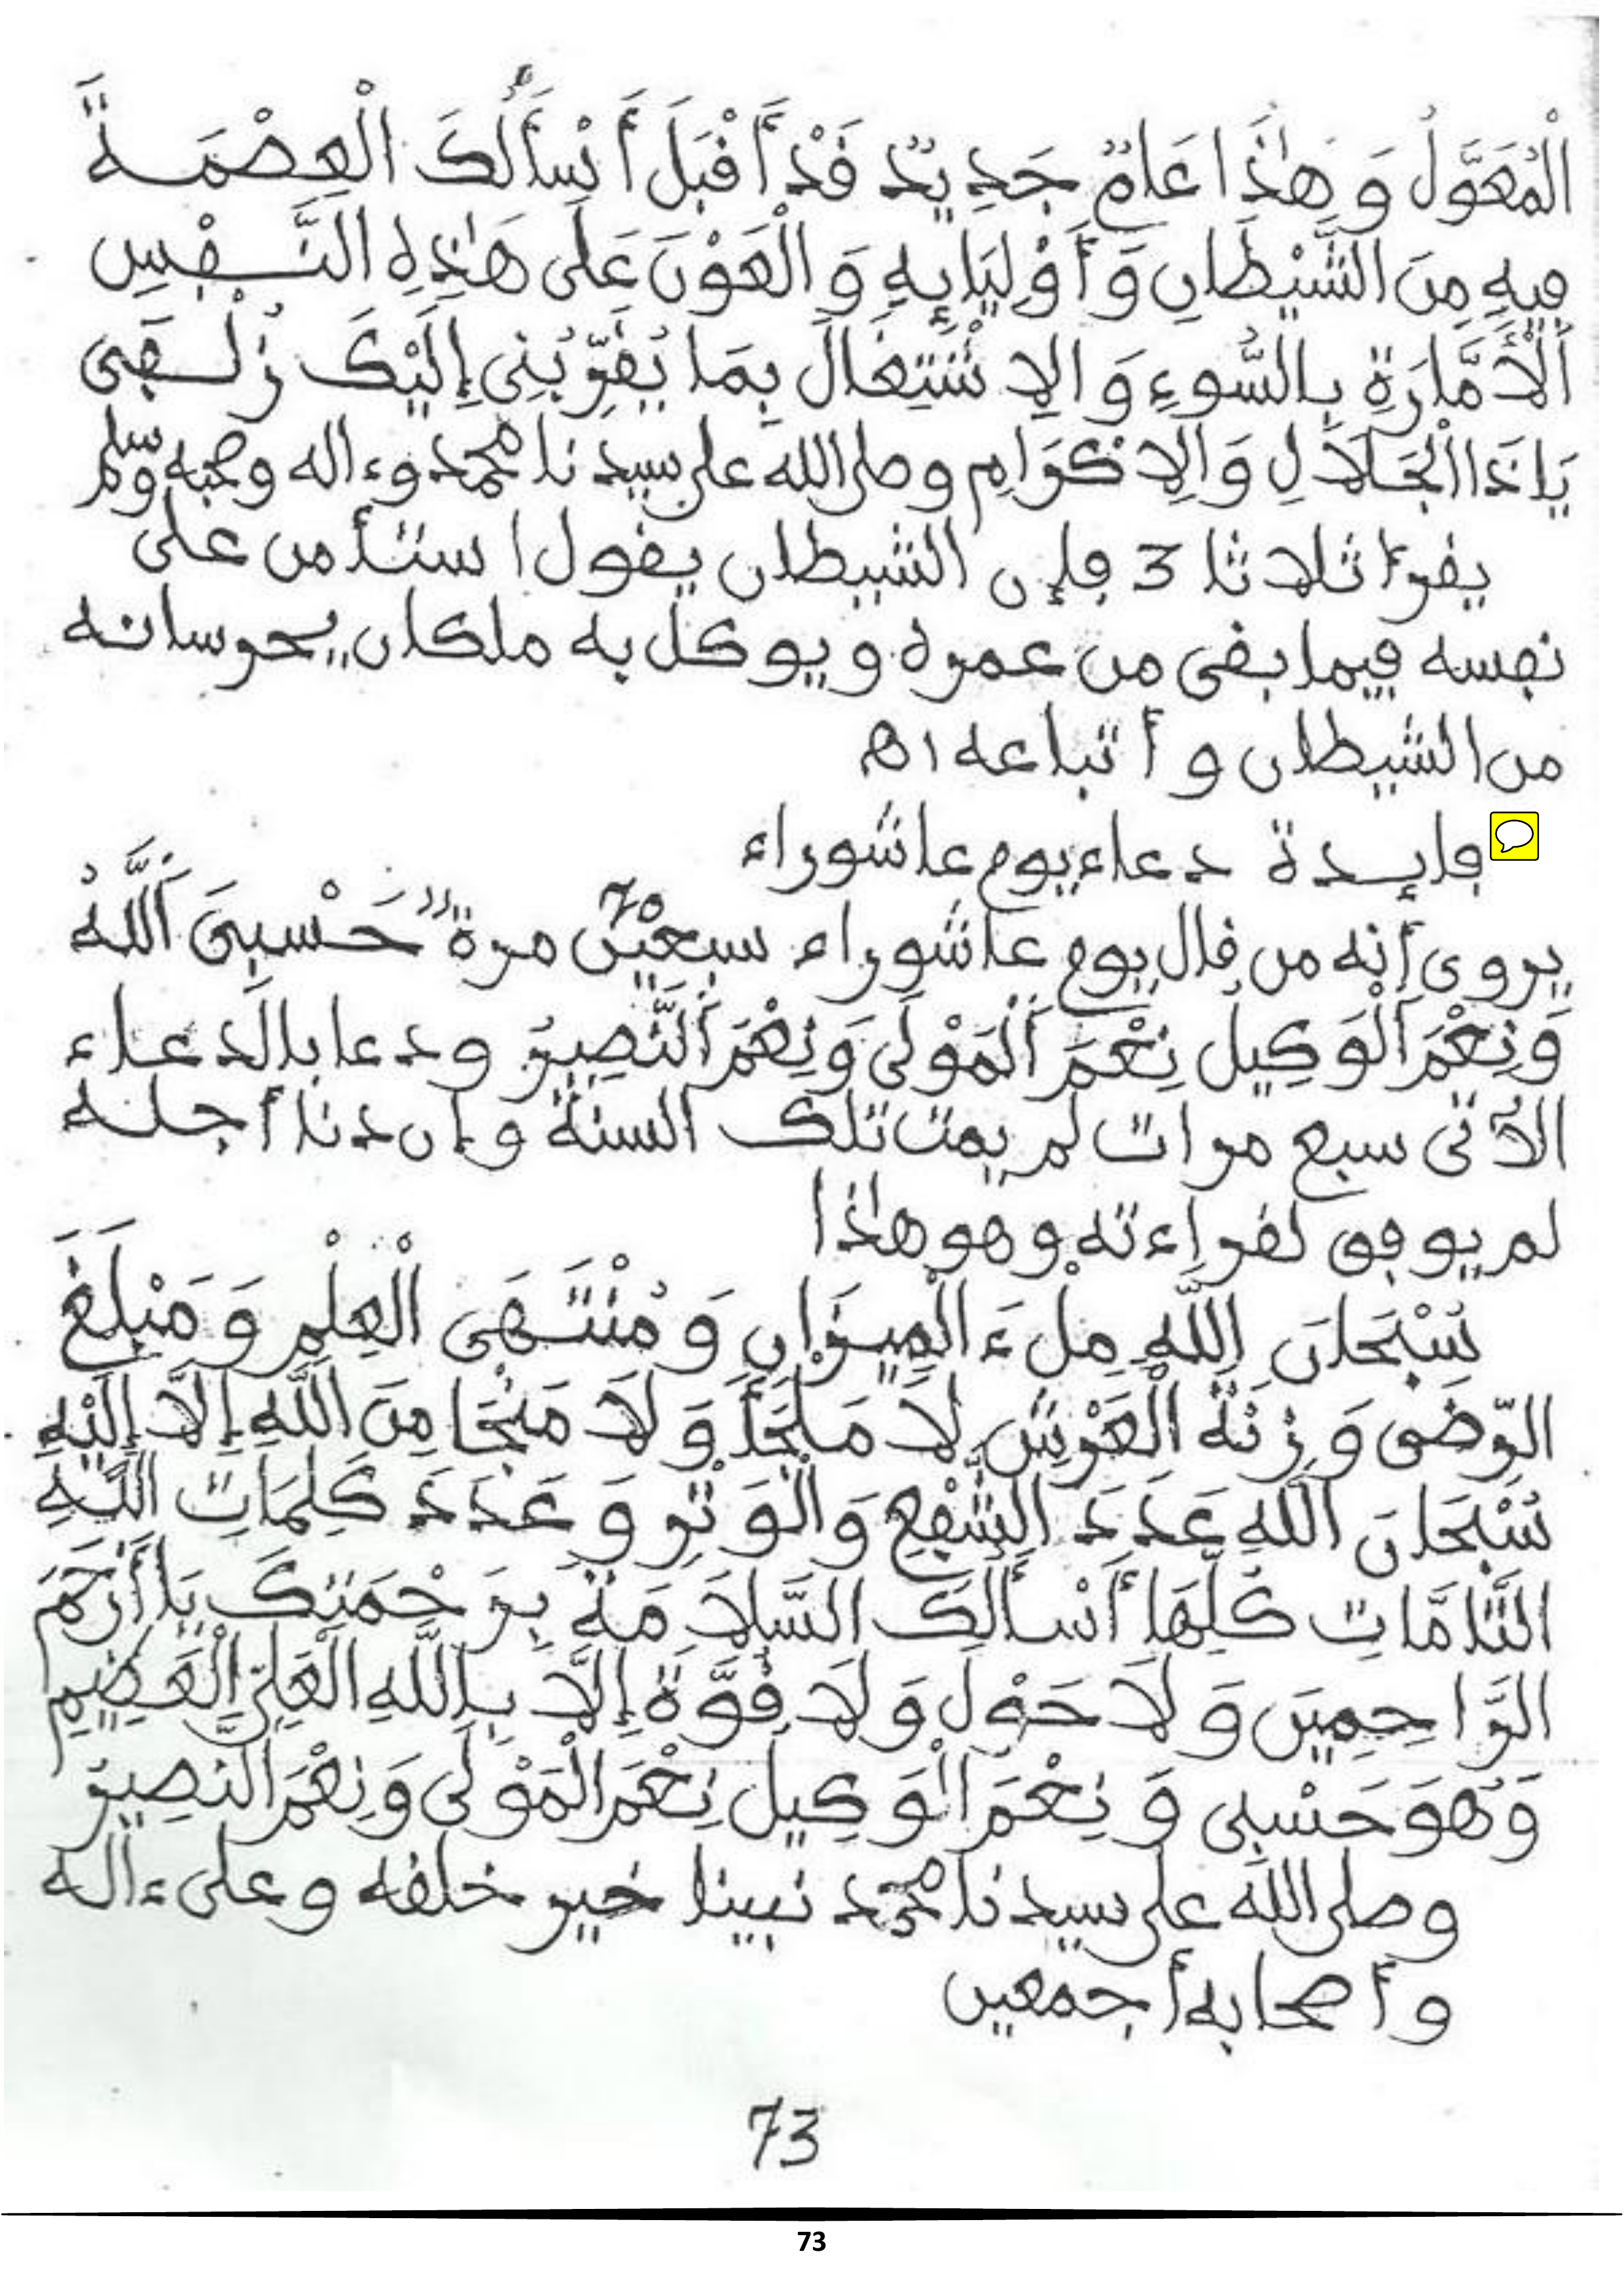 الْمُعَوَّلُ وَهَٰذَا عَامٌ جَدِيدٌ قَدْ أَقْبَلَ أَسْأَلُكَ الْعِصْمَةَ
فِيهِ مِنَ الشَّيْطَانِ وَأَوْلِيَائِهِ وَالْعَوْنَ عَلَى هَٰذِهِ النَّفْسِ
الْأَمَّارَةِ بِالسُّوءِ وَالِاشْتِغَالَ بِمَا يُقَرِّبُنِي إِلَيْكَ زُلْفَى
يَا ذَا الْجَلَالِ وَالْإِكْرَامِ وصلى الله على سيدنا محمد وءاله وصحبه وسلم
يقرأ ثلاثا 3 فإن الشيطان يقول استأمن على
نفسه فيما بقى من عمره ويوكل به ملكان يحرسانه
من الشيطان وأتباعه اه
فإيدة دعاء يوم عاشوراء
يروى أنه من قال يوم عاشوراء سبعين 70 مرة "حَسْبِيَ اللَّهُ
وَنِعْمَ الْوَكِيلُ نِعْمَ الْمَوْلَى وَنِعْمَ النَّصِيرُ ودعا بالدعاء
الآتى سبع مرات لم يمت تلك السنة وإن دنا أجله
لم يوفق لقراءته وهو هٰذا
سُبْحَانَ اللَّهِ مِلْءَ الْمِيزَانِ وَمُنْتَهَى الْعِلْمِ وَمَبْلَغَ
الرِّضَى وَزِنَةَ الْعَرْشِ لَا مَلْجَأَ وَلَا مَنْجَا مِنَ اللَّهِ إِلَّا إِلَيْهِ
سُبْحَانَ اللَّهِ عَدَدَ الشَّفْعِ وَالْوَتْرِ وَعَدَدَ كَلِمَاتِ اللَّهِ
التَّامَّاتِ كُلِّهَا أَسْأَلُكَ السَّلَامَةَ بِرَحْمَتِكَ يَا أَرْحَمَ
الرَّاحِمِينَ وَلَا حَوْلَ وَلَا قُوَّةَ إِلَّا بِاللَّهِ الْعَلِيِّ الْعَظِيمِ
وَهُوَ حَسْبِى وَنِعْمَ الْوَكِيلُ نِعْمَ الْمَوْلَى وَنِعْمَ النَّصِيرُ
وصلى الله على سيدنا محمد نبينا خير خلقه وعلى ءاله
وأصحابه أجمعين
73
73